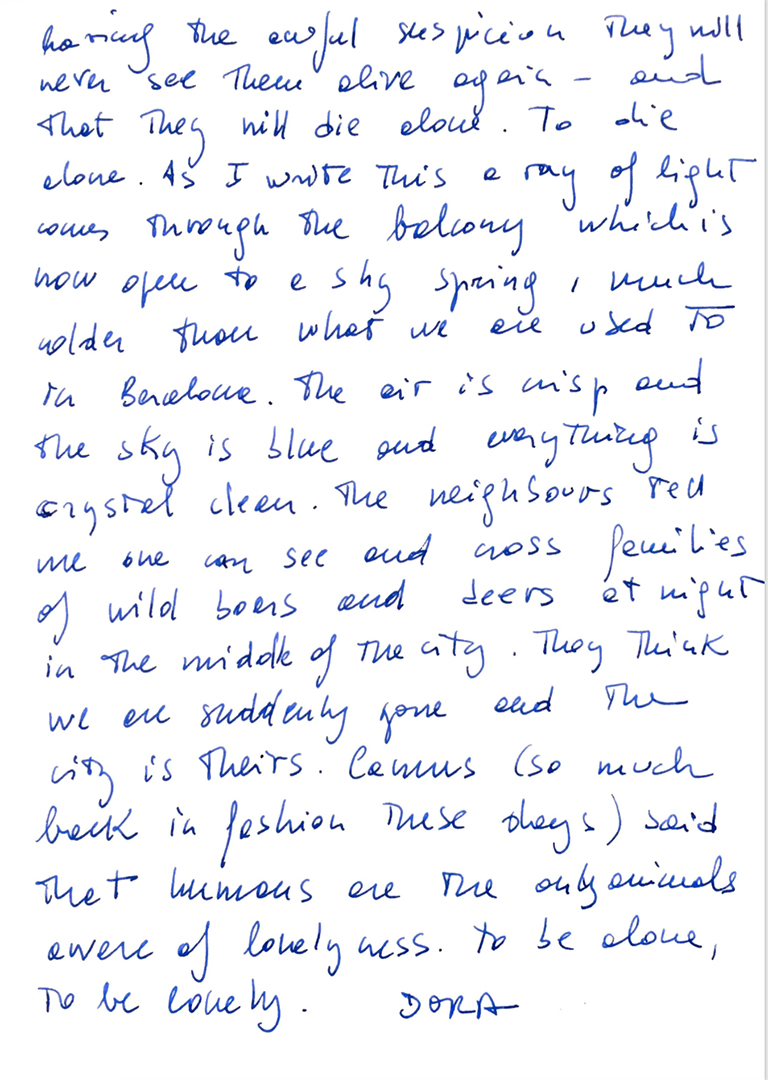 having the awful suspicion they will
never see them alive again - and
that they will die alone. To die
alone. As I write this a ray of light
comes through the balcony which is
now open to a shy spring, much
colder than what we are used to
in Barcelona. The air is crisp and
the sky is blue and everything is
crystal clean. The neighbours tell
me one can see and cross families
of wild boars and deers at night
in the middle of the city. They think
we are suddenly gone and the
city is theirs. Camus (so much
back in fashion these days) said
that humans are the only animals
aware of lonelyness. To be alone,
to be lonely. DORA